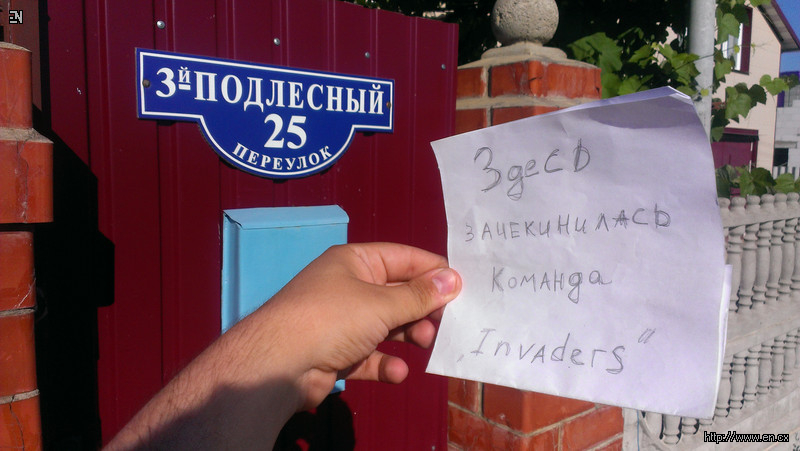 EN
3й ПОДЛЕСНЫЙ
25
ПЕРЕУЛОК
Здесь
зачекинилась
команда
„Invaders"
http://www.en.cx